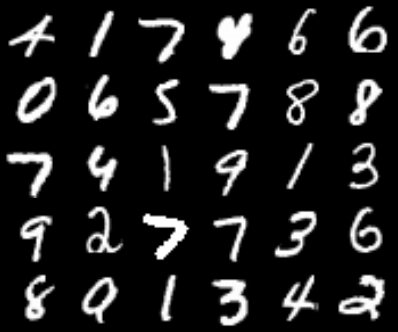 4 1 7 4 6 6
0 6 5 7 8 8
7 4 1 9 1 3
9 2 7 7 3 6
8 0 1 3 4 2